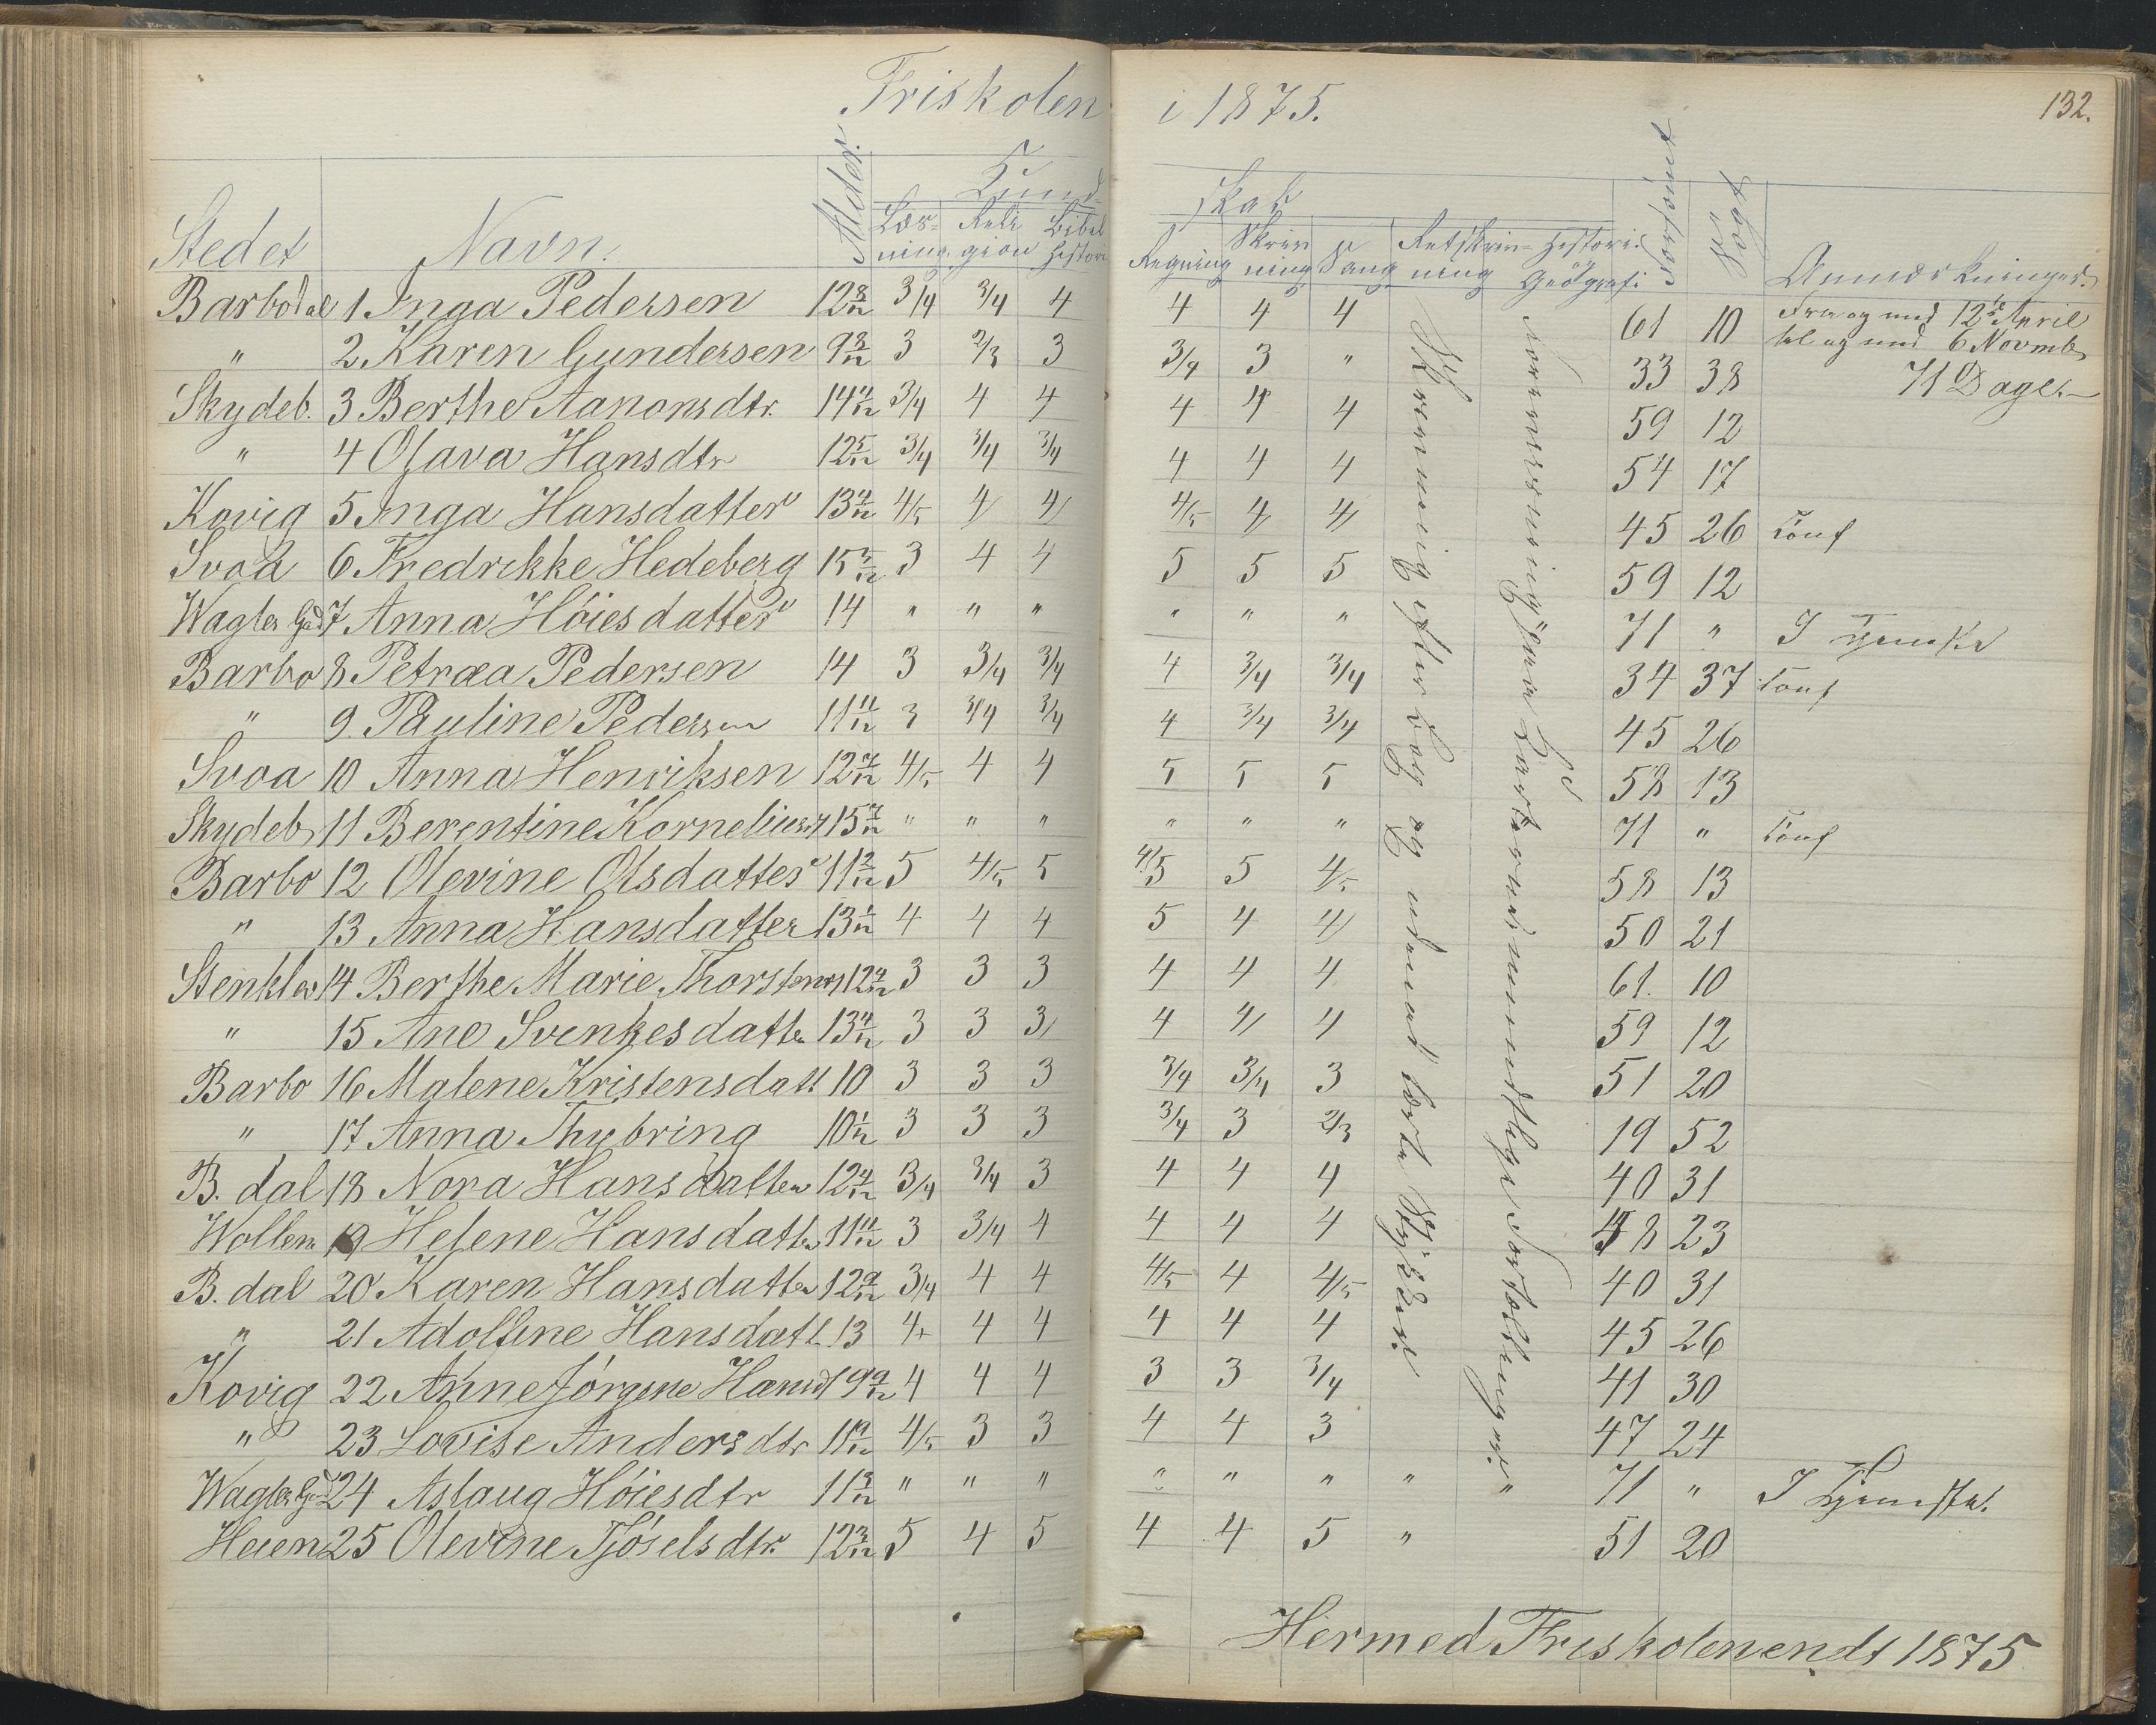 Friskolen i 1875. 132.
Stedet Navn. Alder. Kund- skab Forsømt Søgt Anmærkninger.
Læs- ning. Reli gion Bibel historie Regning Skriv ning Sang Retskriv- ning Historie Geografi
Barbodal 1 Inga Pedersen 12 8/12 3/4 3/4 4 4 4 4 61 10 Fra og med 12te April
" 2 Karen Gundersen 9 8/12 3 2/3 3 3/4 3 " 33 38 til og med 6 Novmb
71 Dage.
Skydeb. 3 Berthe Aanonsdtr. 14 4/12 3/4 4 4 4 4 4 59 12
" 4 Olava Hansdtr 12 5/12 3/4 3/4 3/4 4 4 4 54 17
Kovig 5 Inga Hansdatter 13 4/12 4/5 4 4 4/5 4 4 45 26 Conf
Svoa 6 Fredrikke Hedeberg 15 5/12 3 4 4 5 5 5 59 12
Wagter Gd 7 Anna Höiesdatter 14 " " " " " " 71 " I Tjeneste
Barbo 8 Petræa Pedersen 14 3 3/4 3/4 4 3/4 3/4 34 37 Conf
" 9 Pauline Pedersen 11 11/12 3 3/4 3/4 4 3/4 3/4 45 26
Svoa 10 Anna Henriksen 12 7/12 4/5 4 4 5 5 5 58 13
Skydeb 11 Berentine Korneliusd 15 7/12 " " " " " " 71 " Conf
Barbo 12 Olevine Olsdatter 11 2/12 5 4/5 5 4/5 5 4/5 58 13
" 13 Anna Hansdatter 13 1/12 4 4 4 5 4 4 50 21
Stenklev 14 Berthe Marie Thorstensd 12 4/12 3 3 3 4 4 4 61. 10
" 15 Ane Svenkesdatter 13 4/12 3 3 3 4 4 4 59 12
Barbo 16 Malene Kristensdatt 10 3 3 3 3/4 3/4 3 51 20
" 17 Anna Thybring 10 1/12 3 3 3 3/4 3 2/3 19 52
B. dal 18 Nora Hansdatter 12 4/12 3/4 3/4 3 4 4 4 40 31
Wollen 19 Helene Hansdatter 11 11/12 3 3/4 4 4 4 4 48 23
B. dal 20 Karen Hansdatter 12 9/12 3/4 4 4 4/5 4 4/5 40 31
" 21 Adolfine Hansdatt. 13 4+ 4 4 4 4 4 45 26
Kovig 22 Anne Jörgine Hansd 9 9/12 4 4 4 3 3 3/4 41 30
" 23 Lovise Andersdtr 11 9/12 4/5 3 3 4 4 3 47 24
Wagter Gd 24 Aslaug Höiesdtr 11 3/12 " " " " " " " " 71 " I Tjeneste.
Heien 25 Olevine Tjöselsdtr. 12 3/12 5 4 5 4 4 5 " 51 20
Skrevning efter Bog og udenad lærte Stykker.
Normisning paa Kartet ved mundtlige Fortællinger.
Hermed Friskolen endt 1875